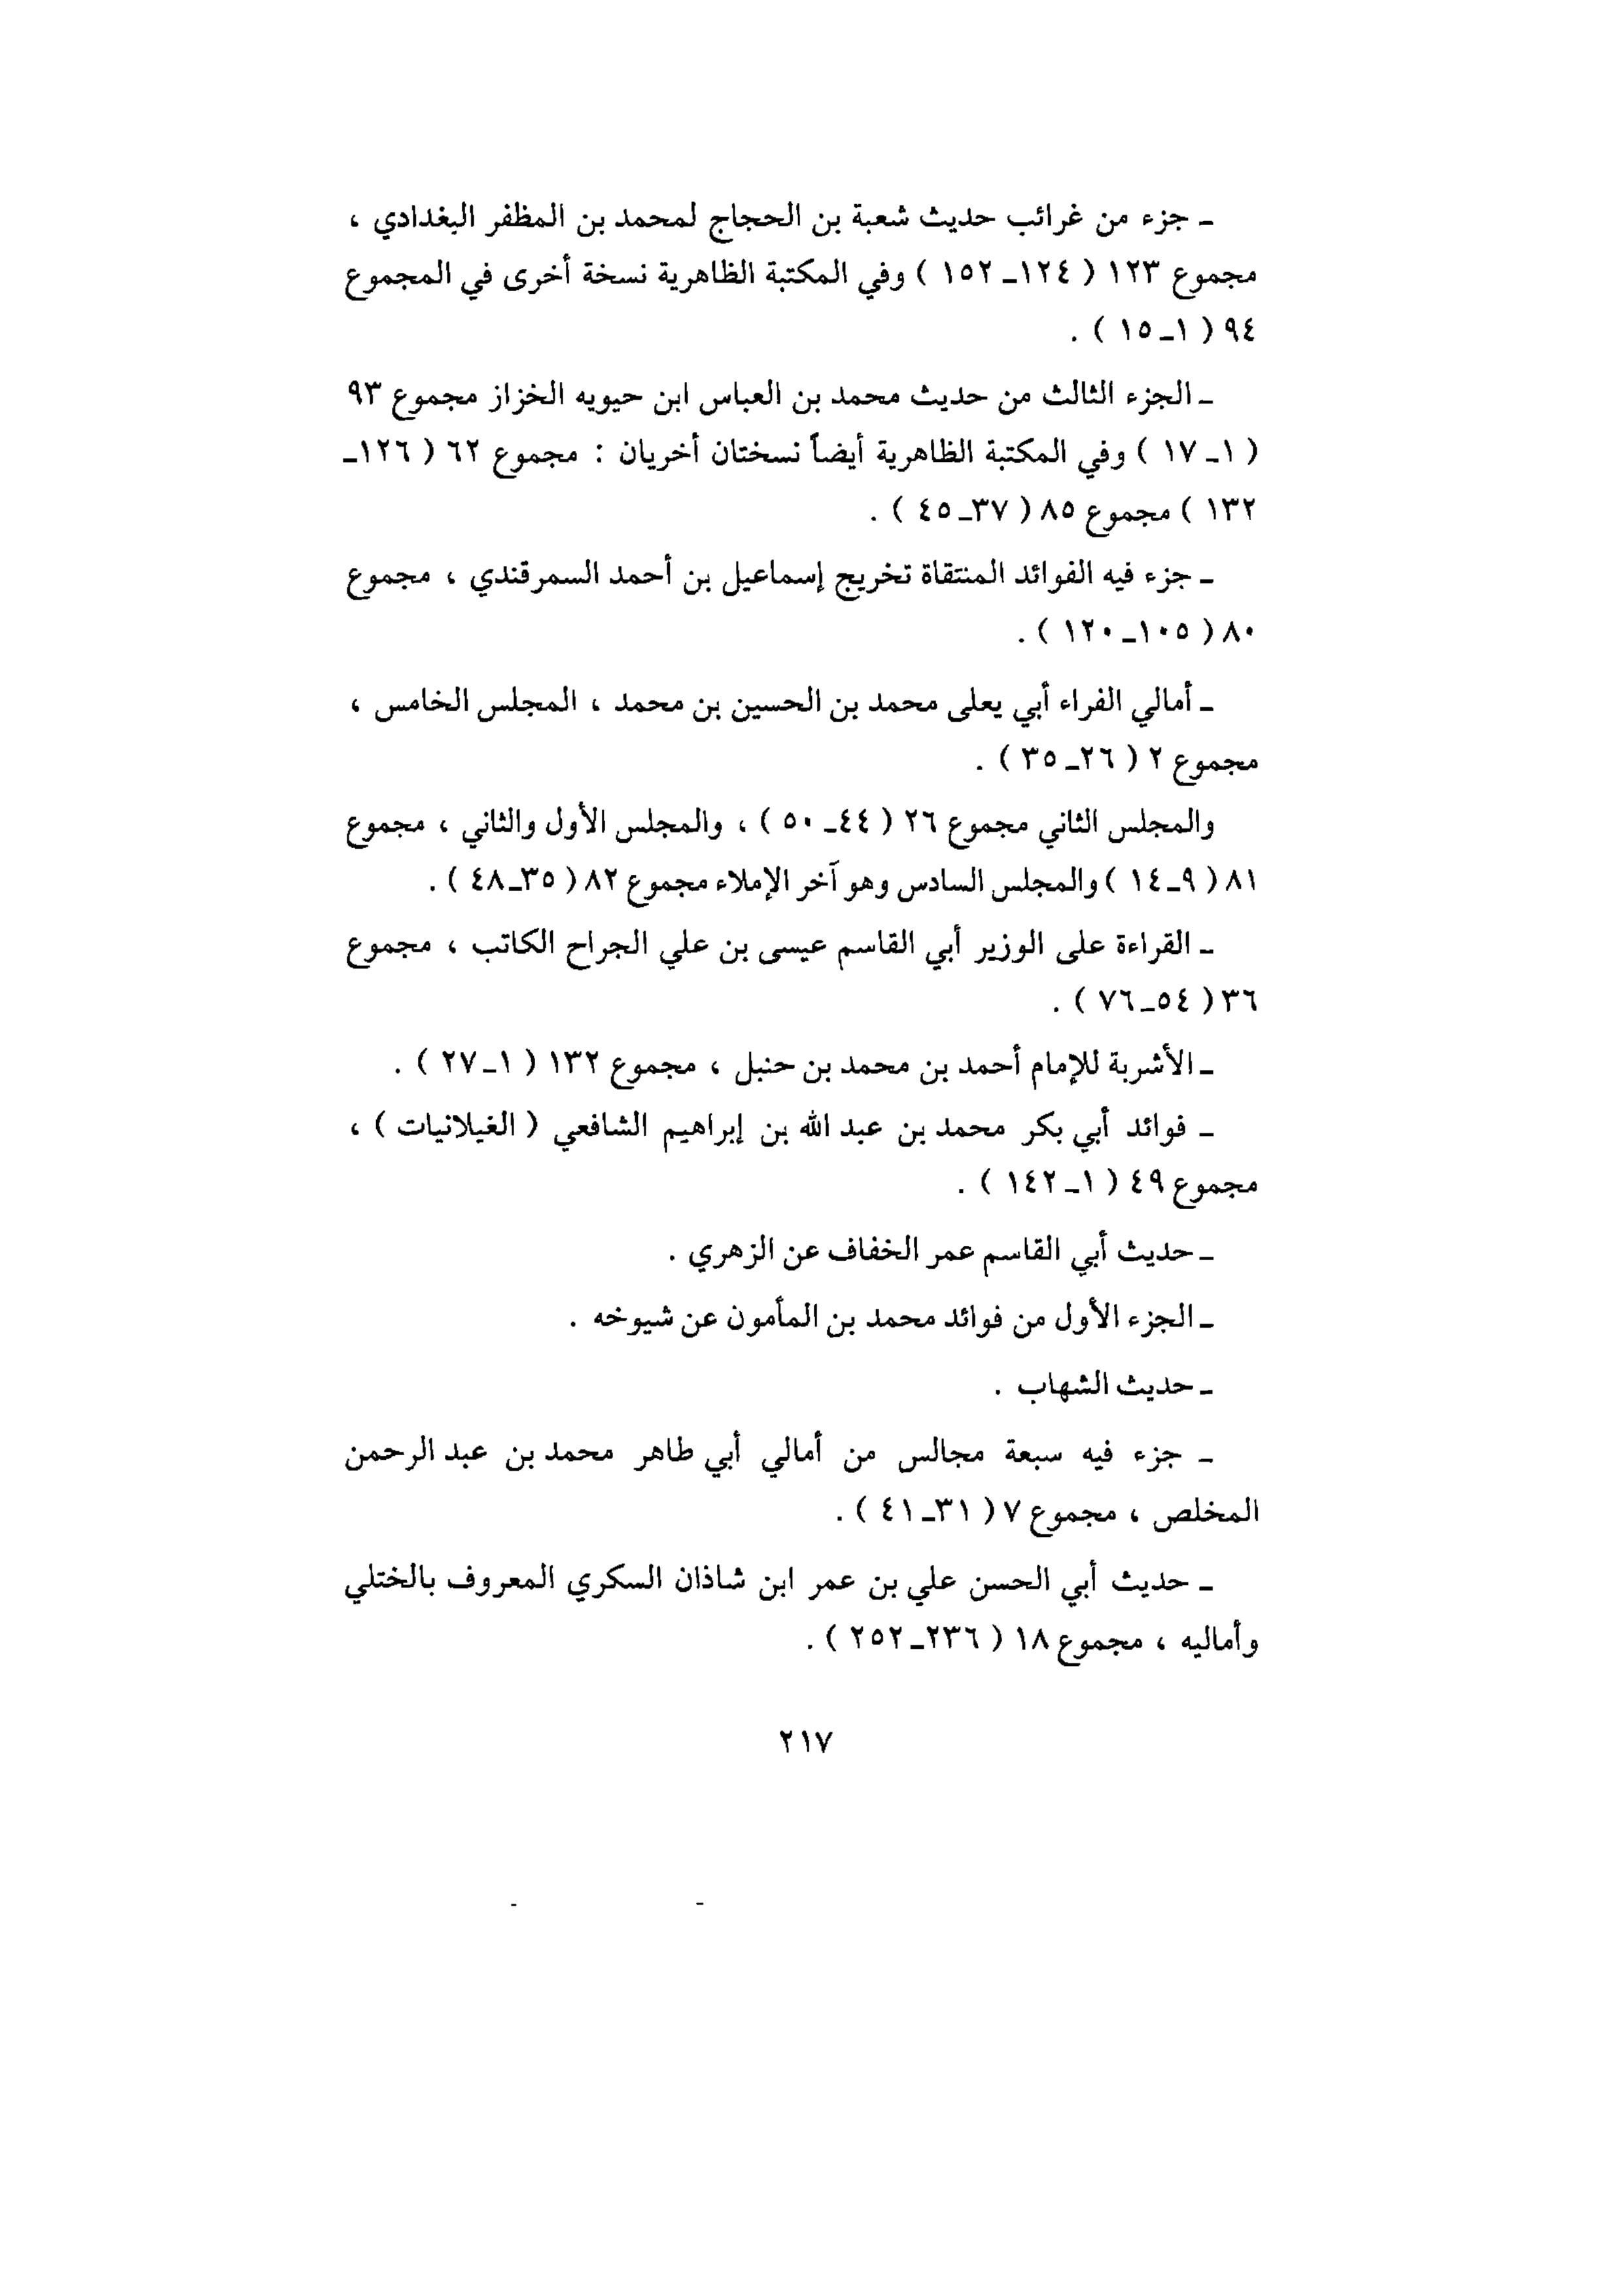 ـ جزء من غرائب حديث شعبة بن الحجاج لمحمد بن المظفر البغدادي ،
مجموع ١٢٣ ( ١٢٤ـ ١٥٢ ) وفي المكتبة الظاهرية نسخة أخرى في المجموع
٩٤ ( ١ـ ١٥ ) .
ـ الجزء الثالث من حديث محمد بن العباس ابن حيويه الخزاز مجموع ٩٣
( ١ـ ١٧ ) وفي المكتبة الظاهرية أيضاً نسختان أخريان : مجموع ٦٢ ( ١٢٦ـ
١٣٢ ) مجموع ٨٥ ( ٣٧ـ ٤٥ ) .
ـ جزء فيه الفوائد المنتقاة تخريج إسماعيل بن أحمد السمرقندي ، مجموع
٨٠ ( ١٠٥ـ ١٢٠ ) .
ـ أمالي الفراء أبي يعلى محمد بن الحسين بن محمد ، المجلس الخامس ،
مجموع ٢ ( ٢٦ـ ٣٥ ) .
والمجلس الثاني مجموع ٢٦ ( ٤٤ـ ٥٠ ) ، والمجلس الأول والثاني ، مجموع
٨١ ( ٩ـ ١٤ ) والمجلس السادس وهو آخر الإملاء مجموع ٨٢ ( ٣٥ـ ٤٨ ) .
ـ القراءة على الوزير أبي القاسم عيسى بن علي الجراح الكاتب ، مجموع
٣٦ ( ٥٤ـ ٧٦ ) .
ـ الأشربة للإمام أحمد بن محمد بن حنبل ، مجموع ١٣٢ ( ١ـ ٢٧ ) .
ـ فوائد أبي بكر محمد بن عبد الله بن إبراهيم الشافعي ( الغيلانيات ) ،
مجموع ٤٩ ( ١ـ ١٤٢ ) .
ـ حديث أبي القاسم عمر الخفاف عن الزهري .
ـ الجزء الأول من فوائد محمد بن المأمون عن شيوخه .
ـ حديث الشهاب .
ـ جزء فيه سبعة مجالس من أمالي أبي طاهر محمد بن عبد الرحمن
المخلص ، مجموع ٧ ( ٣١ـ ٤١ ) .
ـ حديث أبي الحسن علي بن عمر ابن شاذان السكري المعروف بالختلي
وأماليه ، مجموع ١٨ ( ٢٣٦ـ ٢٥٢ ) .
٢١٧